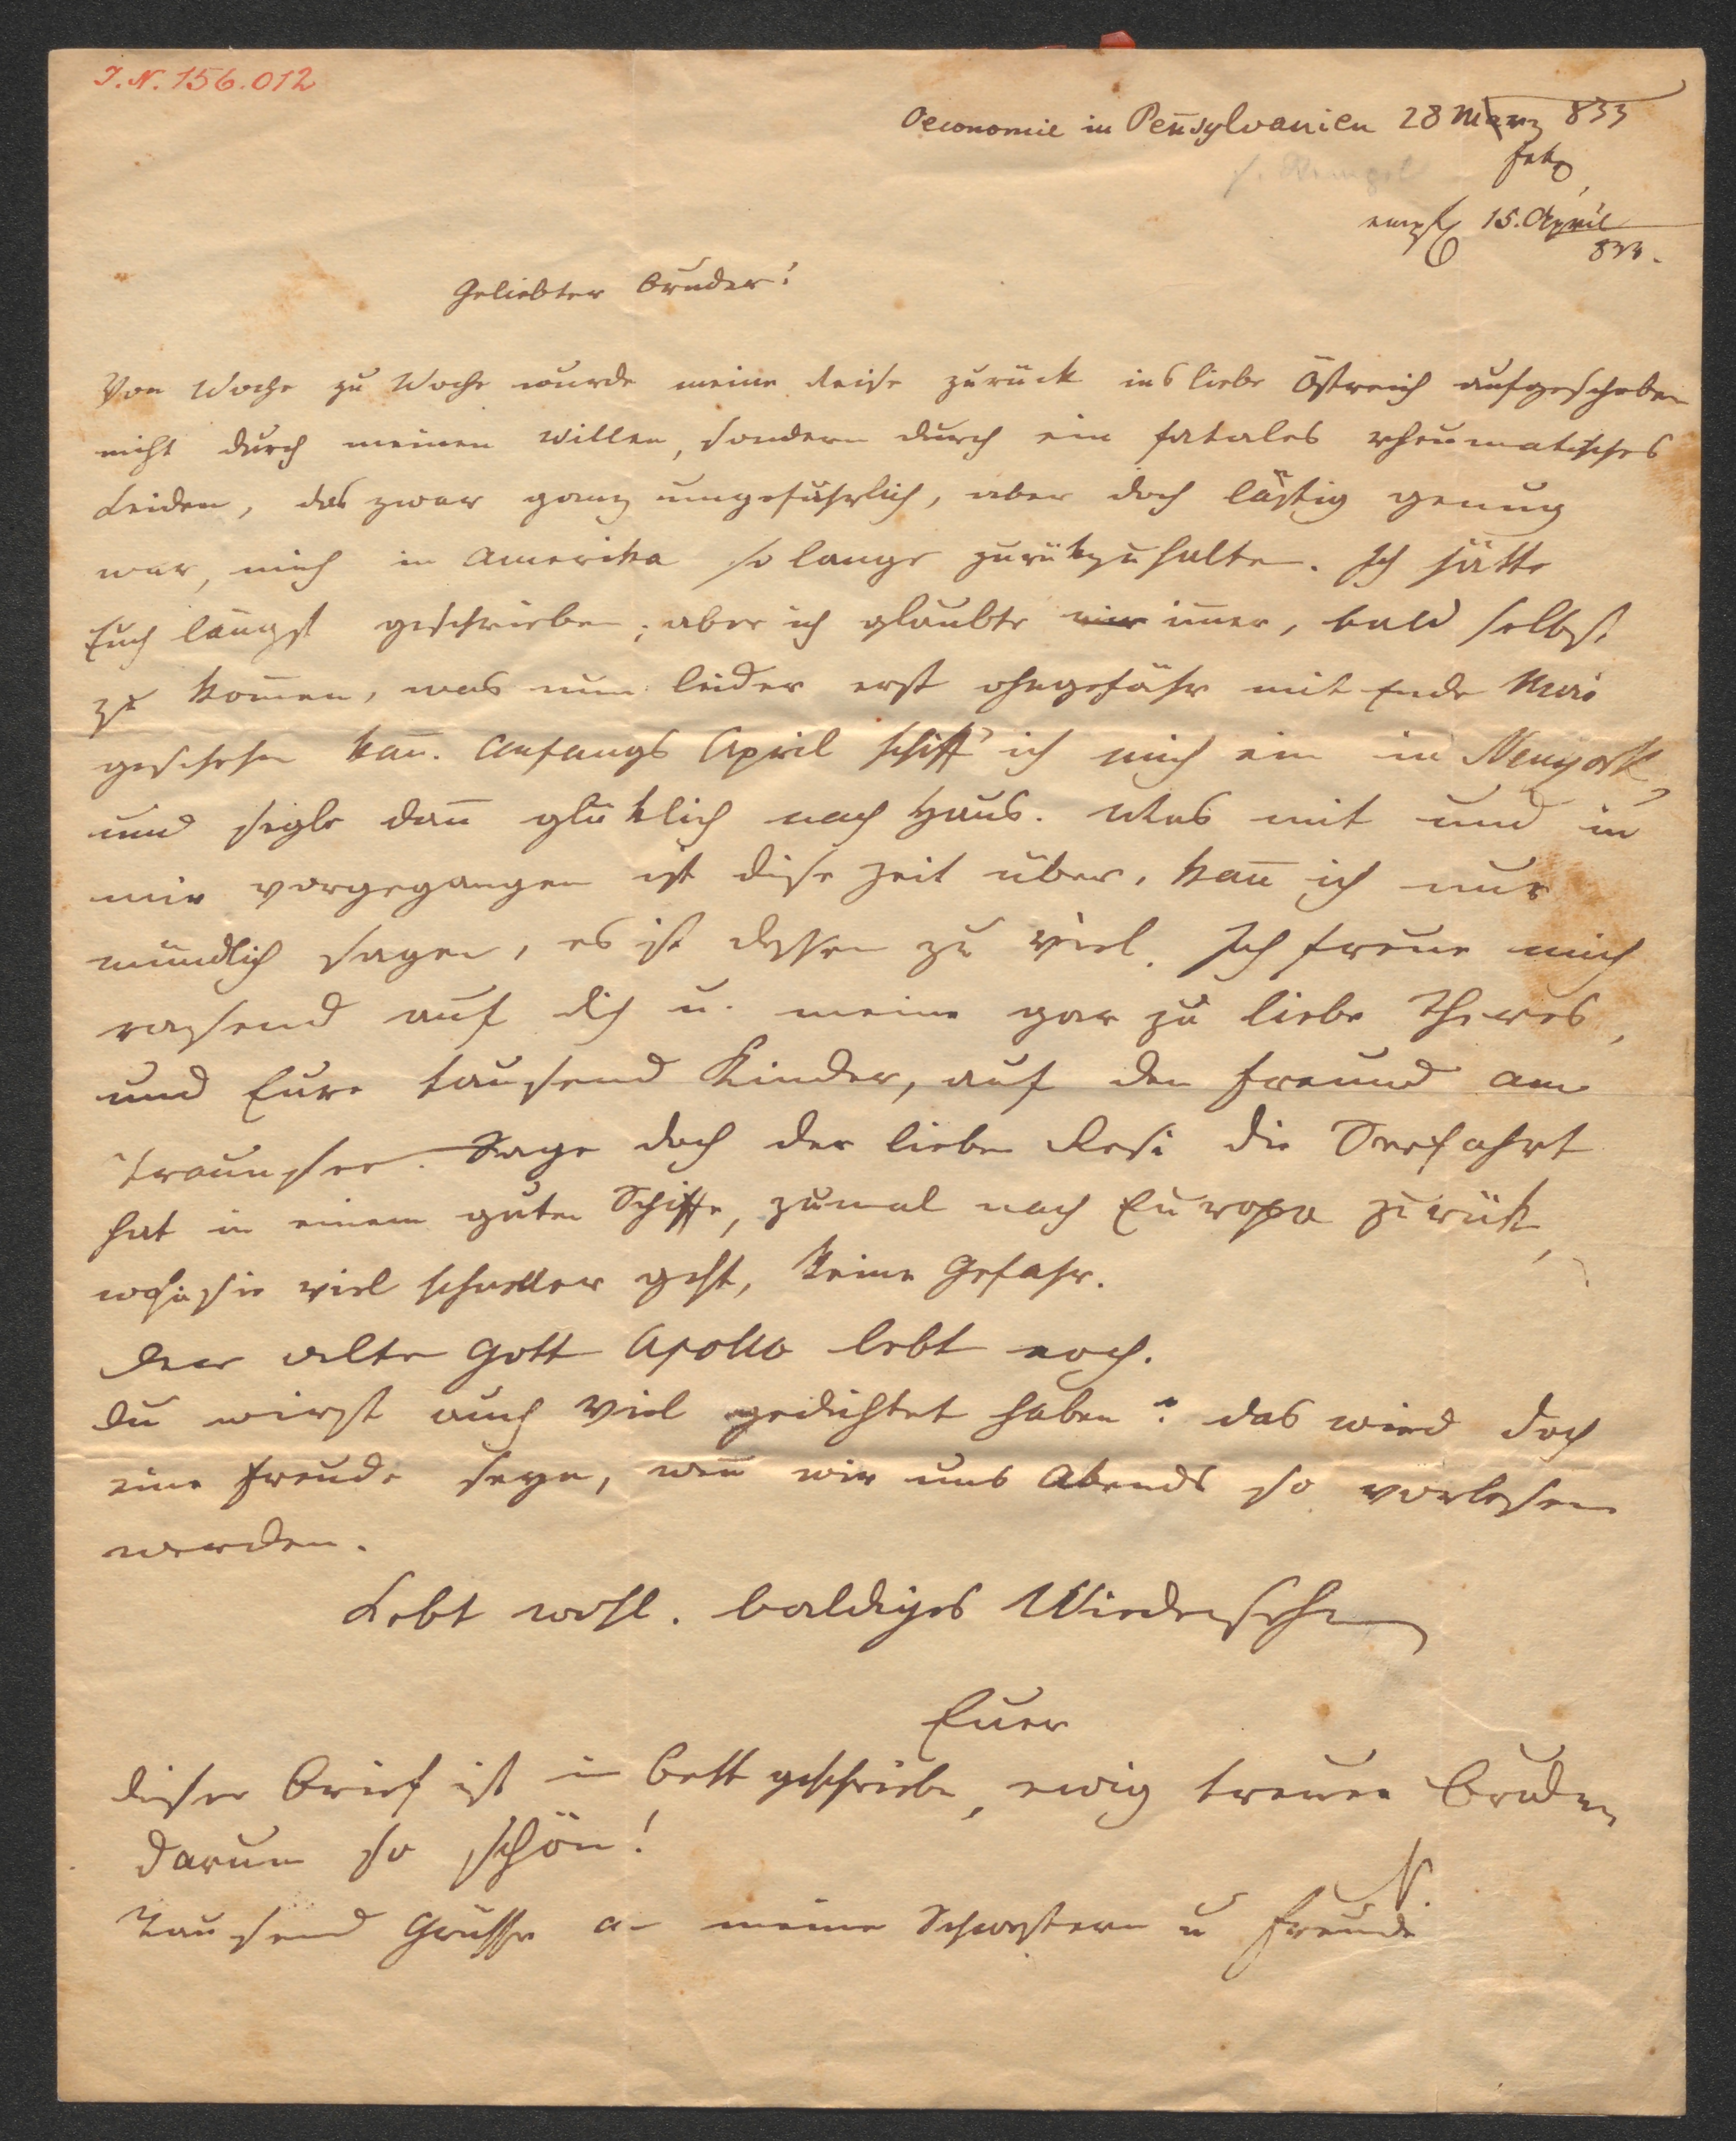 I.N. 156.012
Oeconomie in Peñsylvanien 28 März 833
Feb
empf 15. April
833.
Geliebter Bruder!
Von Woche zu Woche wurde meine Reise zurück ins liebe Östreich aufgeschoben
nicht durch meinen Willen, sondern durch ein fatales rheumatisches
Leiden, das zwar ganz ungefährlich, aber doch lästig genug
war, mich in Amerika so lange zurükzuhalten. Ich hätte
Euch längst geschrieben; aber ich glaubte im̄er, bald selbst
zu kom̄en, was nun leider erst ohngefähr mit Ende Mai
geschehen kan̄. Anfangs April schiff' ich mich ein in Newyork,
und segle dan̄ glüklich nach Haus. Was mit und in
mir vorgegangen ist diese Zeit über, kan̄ ich nur
mündlich sagen, es ist dessen zu viel. Ich freue mich
rasend auf dich u. meine gar zu liebe Theres,
und Eure tausend Kinder, auf den Freund am
Traunsee. Sage doch der lieben Resi die Seefahrt
hat in einem guten Schiffe, zumal nach Europa zurük,
wo sie viel schneller geht, keine Gefahr.
Der alte Gott Apollo lebt noch.
Du wirst auch viel gedichtet haben? das wird doch
eine Freude seyn, wen̄ wir uns Abends so vorlesen
werden.
Lebt wohl. baldiges Wiedersehn
Euer
dieser Brief ist im Bett geschrieben, ewig treuer Bruder
darum so schön!
N.
Tausend Grüsse an meine Schwestern u Freunde